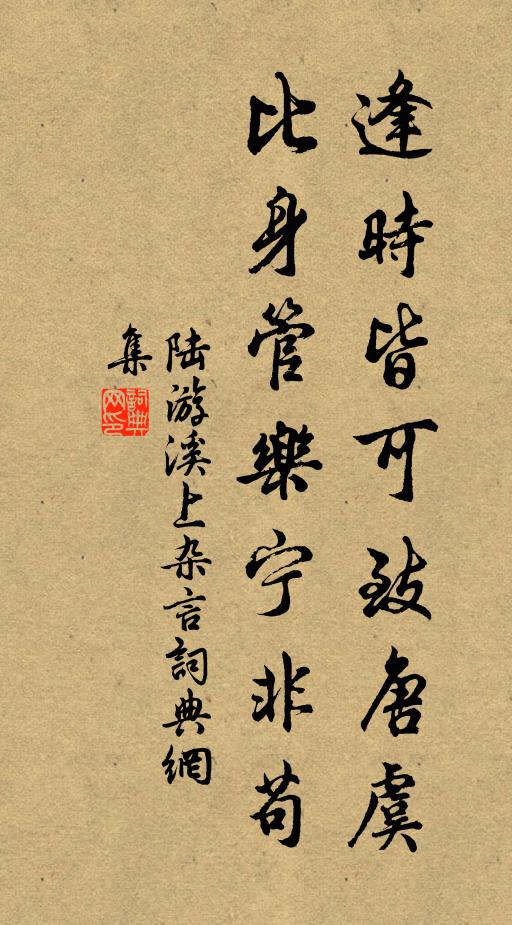 逢時皆可致唐虞
比身管樂宁非苟
陆游溪上杂言詞典網
集
詞典网印